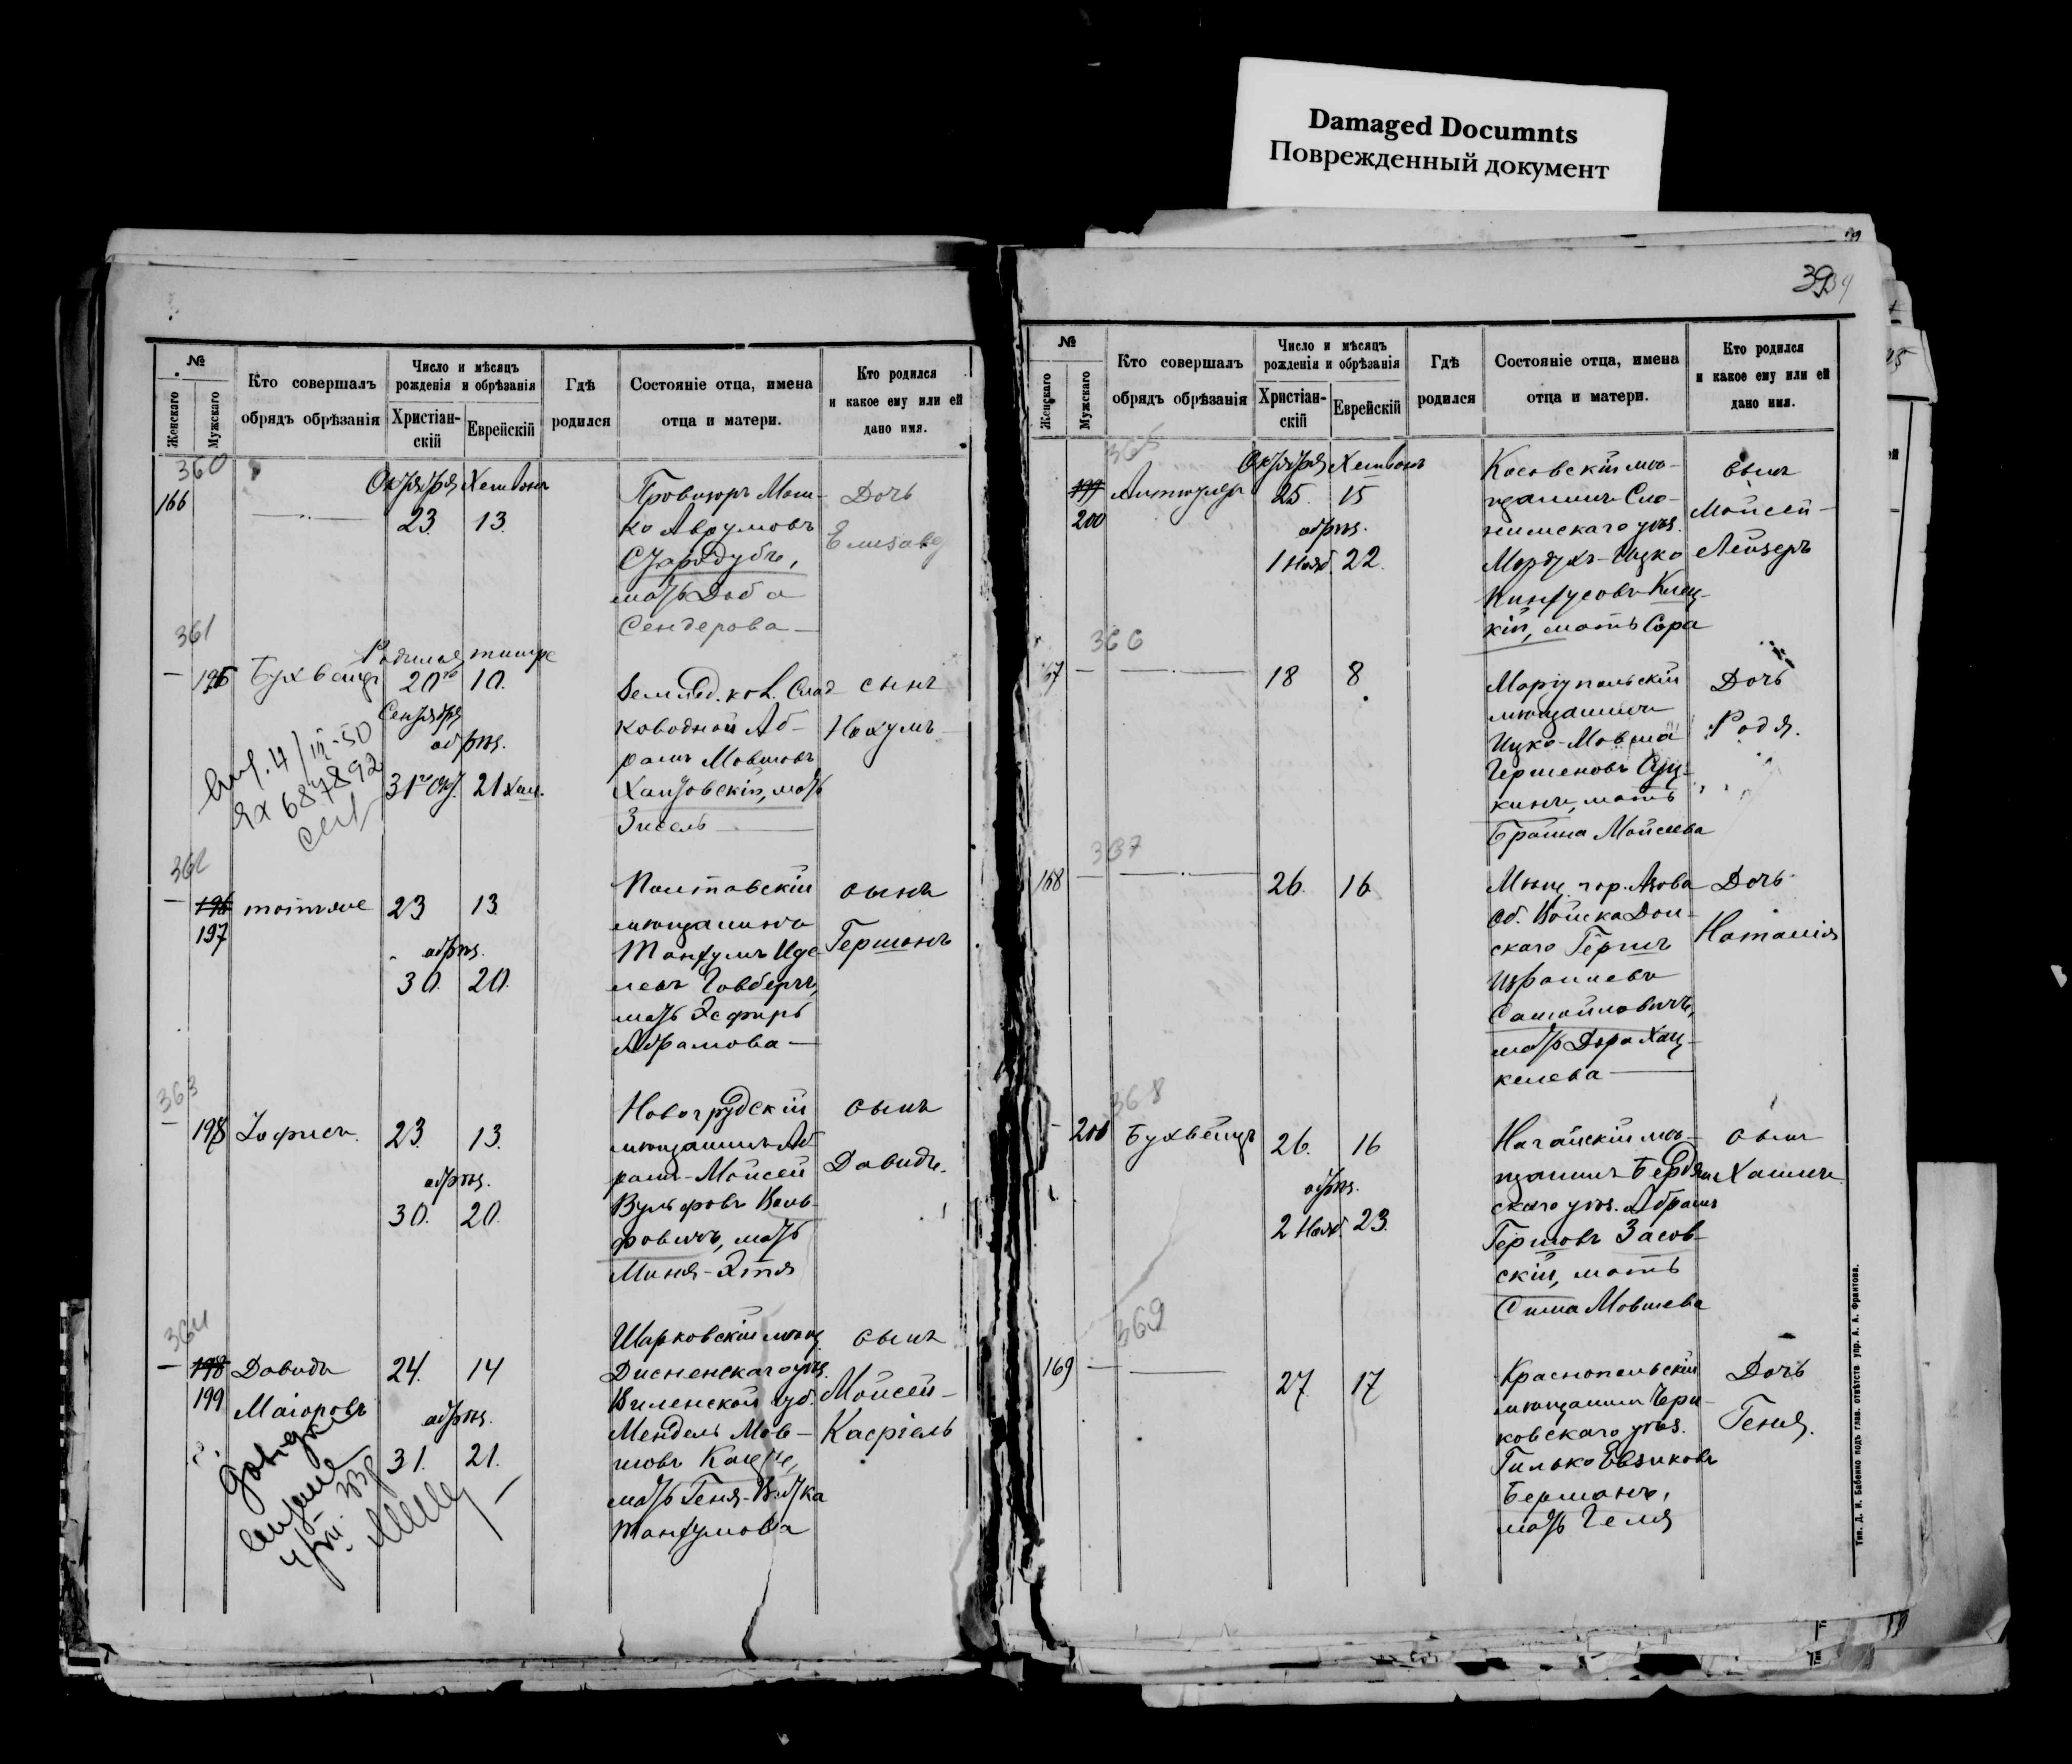 Damaged Documnts
Повреждённый документ
39
№
Женскаго
Мужскаго
Кто совершалъ
обрядъ обрѣзанія
Число и мѣсяцъ
рожденія и обрѣзанія
Христіан-
скій
Еврейскій
Гдѣ
родился
Состояніе отца, имена
отца и матери.
Кто родился
и какое ему или ей
дано имя.
360
166
Октября
Хешвонъ
23
13
Провизоръ Мош-
ко Аврумовъ
Стародубъ,
мать Доба
Сендерова
Дочь
361
196
Бухвейцъ
Родился
тишре
20
10.
Сентября
обрѣз.
31
21 Хеш.
Землед. кол. Слад
ководной Аб-
рамъ Мовшовъ
мать
Зисель
сынъ
Нохумъ
4/III-50
687892
362
196
197
тотже
23
13
обрѣз.
30.
20.
Полтавскій
мѣщанинъ
Танхумъ Иде-
левъ
мать Эсфирь
Абрамова
сынъ
Гершонъ
363
198
Іофисъ
23
13.
обрѣз.
30.
20.
Новогрудскій
мѣщанинъ Аб
рамъ-Мойсей
Вульфовъ Воль-
фовичъ, мать
Миня-Этя
сынъ
Давидъ.
364
198
199
Давидъ
Маіоровъ
24.
14
обрѣз.
31.
21.
Шарковскій мѣщ.
Дисненскаго уѣз.
Виленской губ.
Мендель Мов-
шовъ
мать Геня-
Танхумова
сынъ
Мойсей-
Касріель
№
Женскаго
Мужскаго
Кто совершалъ
обрядъ обрѣзанія
Число и мѣсяцъ
рожденія и обрѣзанія
Христіан-
скій
Еврейскій
Гдѣ
родился
Состояніе отца, имена
отца и матери.
Кто родился
и какое ему или ей
дано имя.
365
199
200
Октября
Хешвонъ
25
15
обрѣз.
1 Нояб.
22.
Косовскій мѣ-
щанинъ Сло-
нимскаго уѣз.
Мордухъ-Ицко
Пинхусовъ Клец-
кій, мать Сора
сынъ
Мойсей-
Лейзеръ
366
167
18
8
Маріупольскій
мѣщанинъ
Ицко-Мовша
Гершеновъ
кинъ, мать
Браина Мойсеева
Дочь
Родя.
367
168
26.
16
Мѣщ. гор. Азова
Об. Войска Дон-
скаго Гершъ
Израилевъ
Самойловичъ,
мать Дора Хац-
келева
Дочь
Наталія
368
Бухвейцъ
26.
16
обрѣз.
2 Нояб.
23.
Ногайскій мѣ-
щанинъ Бердян
скаго уѣз. Абрамъ
Гершовъ Засов-
скій, мать
Сима Мовшева
сынъ
Хаимъ.
369
169
27.
17
Краснопольскій
мѣщанинъ Чери-
ковскаго уѣз.
Гилько
Берманъ,
мать Геля
Дочь
Геня.
Тип. Д. И. Бабенко подъ глав. отвѣтств. упр. А. А. Франтова.